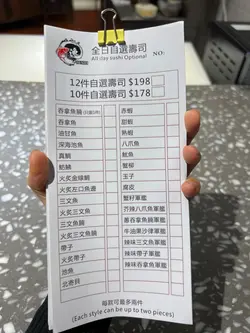 全日自選壽司
All day sushi Optional
NO:
12件自選壽司 $198
10件自選壽司 $178
吞拿魚腩
吞拿魚
油甘魚
深海池魚
真鯛
舫鯡
火炙金線鯛
火炙左口魚邊
三文魚
火炙三文魚
三文魚腩
火炙三文魚腩
帶子
火炙帶子
池魚
北寄貝
赤蝦
甜蝦
熟蝦
八爪魚
魷魚
蟹柳
玉子
腐皮
蟹籽軍艦
芥辣八爪魚軍艦
蔥吞拿魚腩軍艦
牛油果沙律軍艦
辣味三文魚軍艦
辣味帶子軍艦
辣味吞拿魚軍艦
每款可最多兩件
(Each style can be up to two pieces)